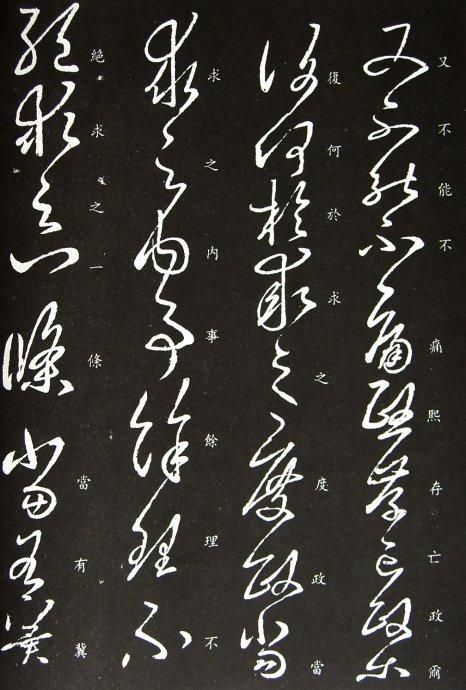 又不能不痛熙存亡政爾
復何於求之度政當
求之內事餘理不
絕求之一條當有冀